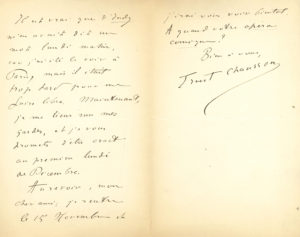 Il est vrai que d'Indy
m'en avait dit un
mot lundi matin,
car j'ai été le voir à
Paris, mais il était
trop tard pour me
faire libre. Maintenant,
je me tiens sur mes
gardes, et je vous
promets d'être exact
au premier lundi
de Décembre.
Au revoir, mon
cher ami, je rentre
le 15 Novembre et
j'irai vous voir bientôt.
A quand votre opéra
comique ?
Bien à vous,
Ernest Chausson